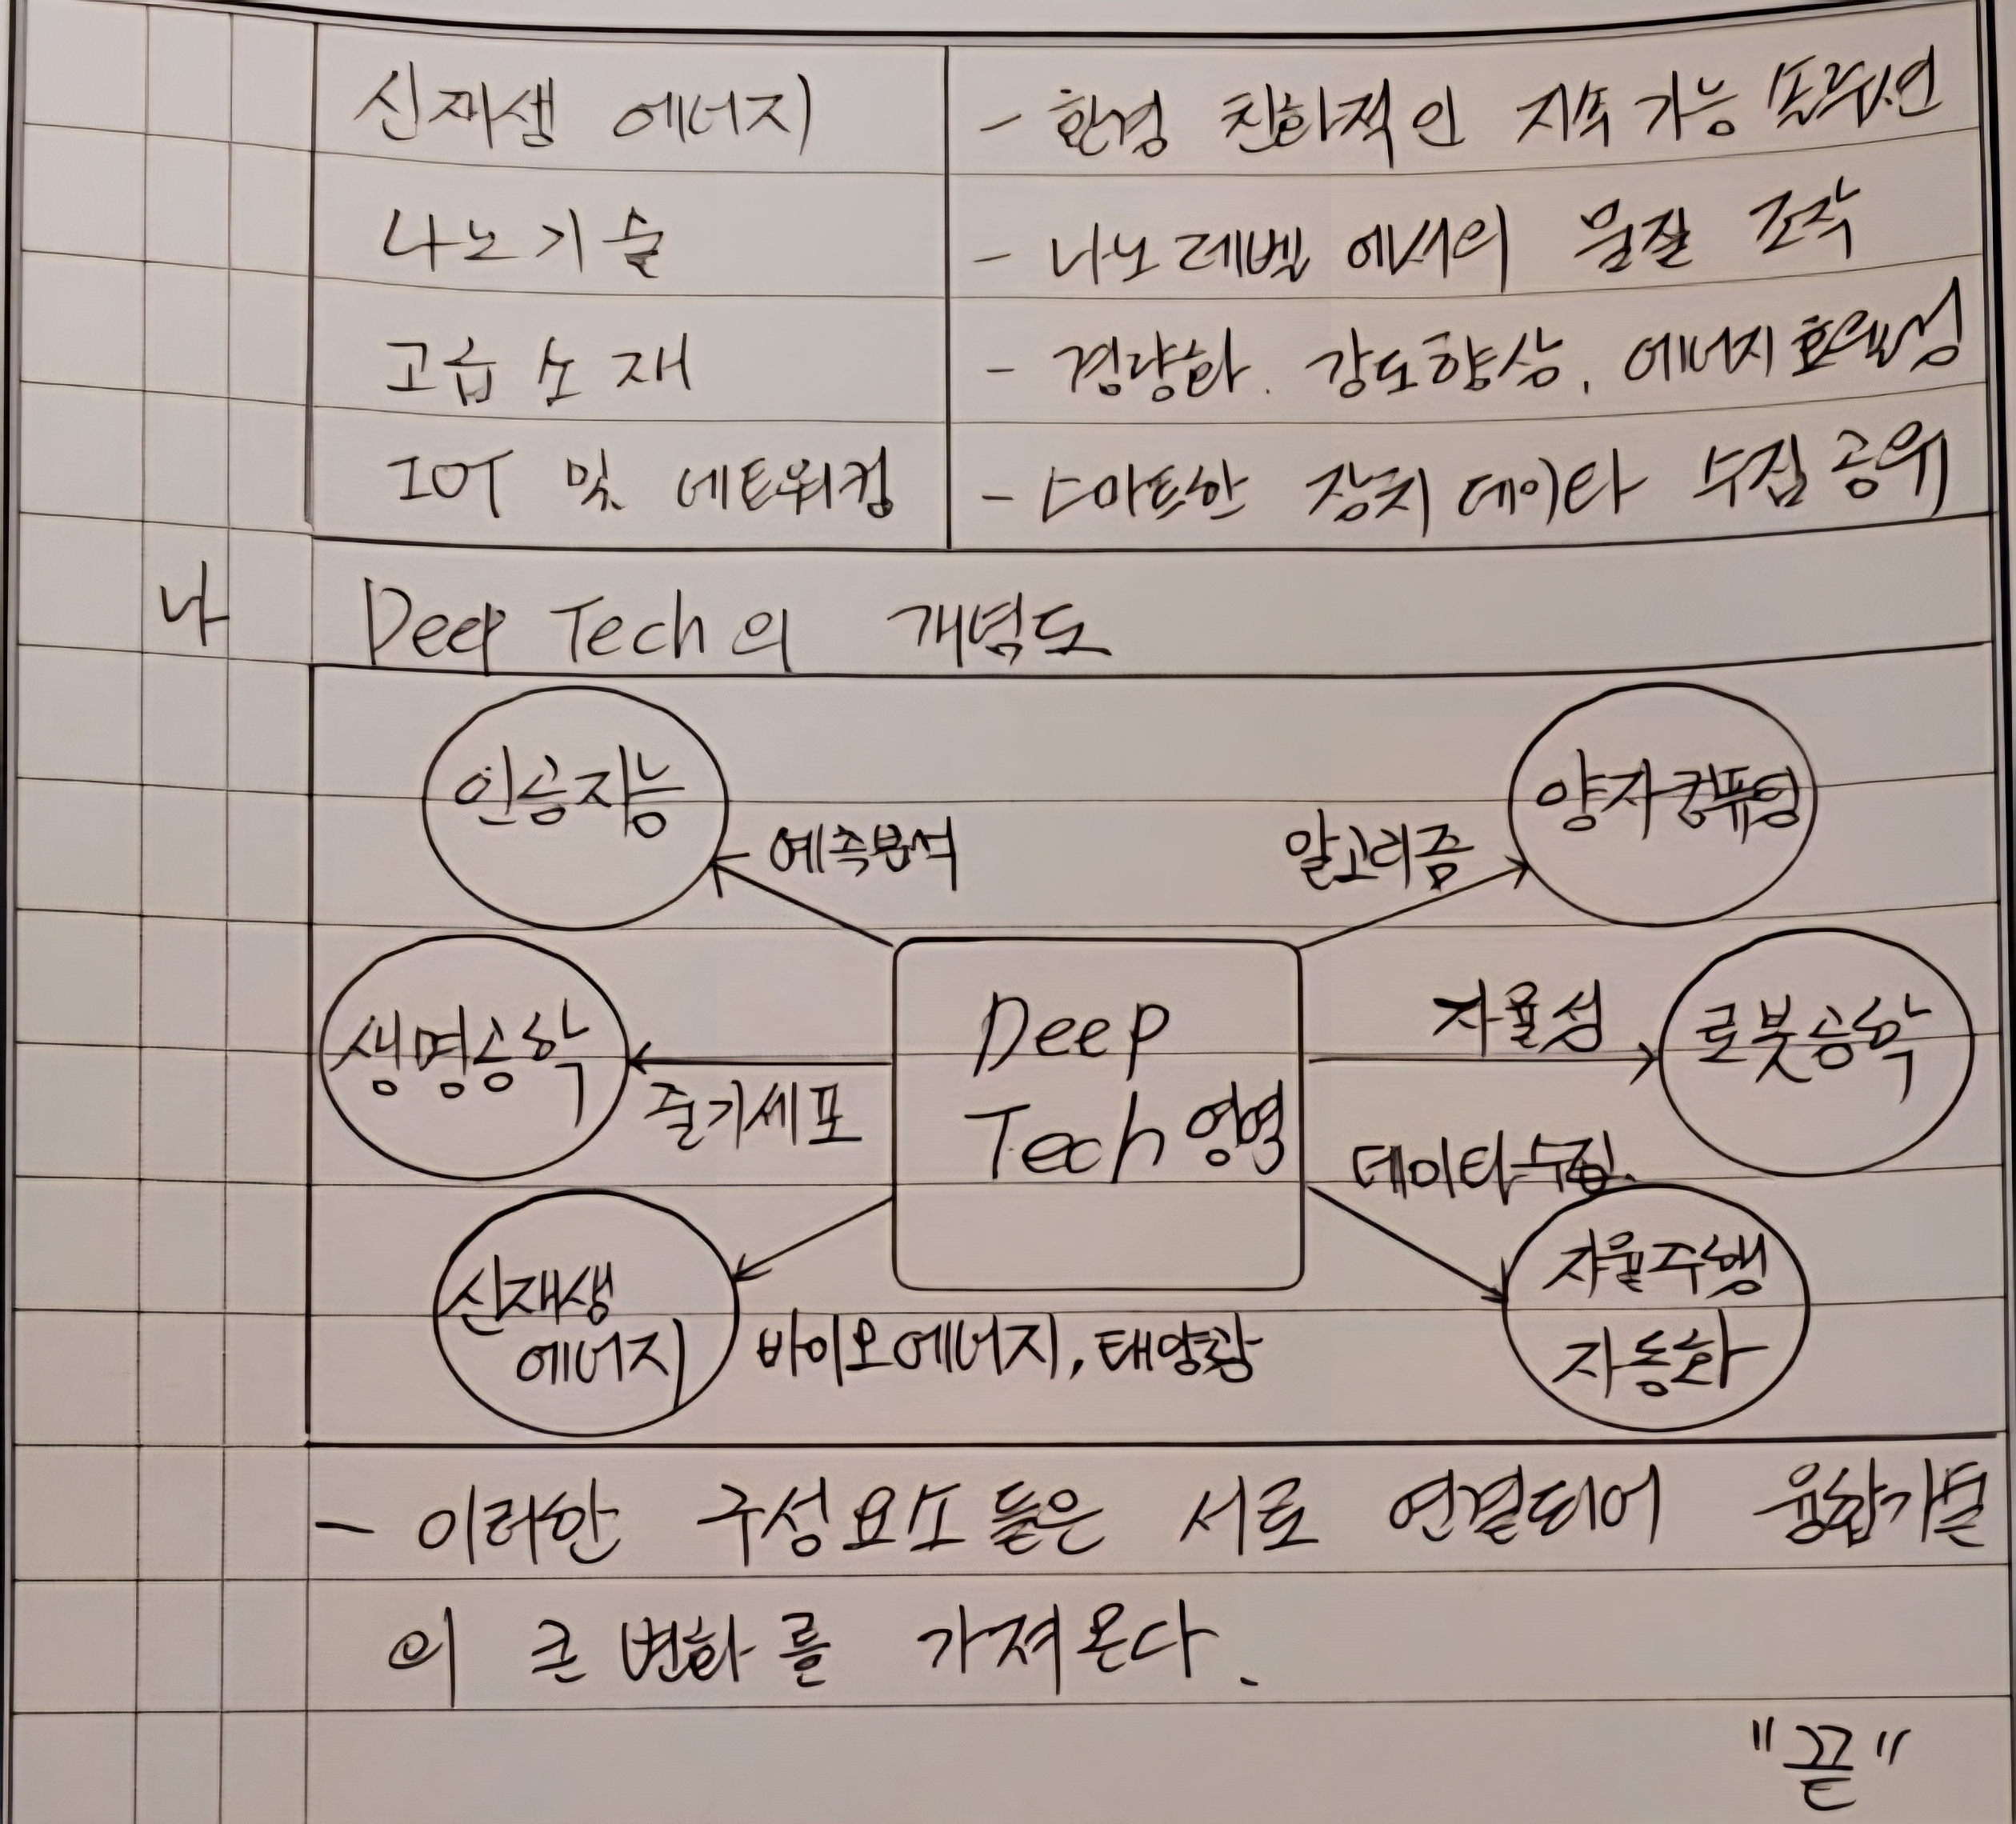 신재생 에너지 - 환경 친화적인 지속가능 솔루션
나노기술 - 나노레벨에서의 물질 조작
고급소재 - 경량화. 강도향상, 에너지효율성
IOT 및 네트워킹 - 스마트한 장치 데이타 수집공유
나 Deep Tech의 개념도
인공지능
양자컴퓨팅
예측분석
알고리즘
생명공학
Deep
Tech영역
자율성
로봇공학
줄기세포
데이타수집
신재생
에너지
바이오에너지, 태양광
자율주행
자동화
- 이러한 구성요소들은 서로 연결되어 융합기술
이 큰 변화를 가져온다.
"끝"